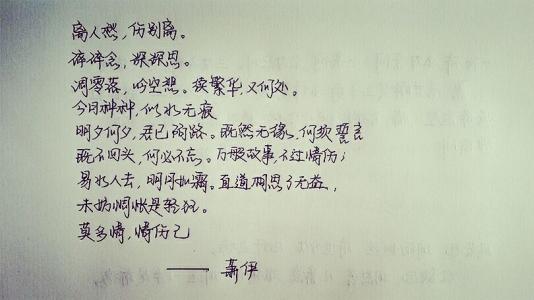 离人愁，伤别离。
碎碎念，深深思。
凋零落，吟空想。读繁华又何处。
今日种种，似水无痕
明夕何夕，君已陌路。既然无缘，何须誓言
既不回头，何必不忘。万般故事，不过情伤；
易水人去，明月如霜。直道相思了无益，
未妨惆怅是轻狂。
莫多情，情伤己
—— 萧伊